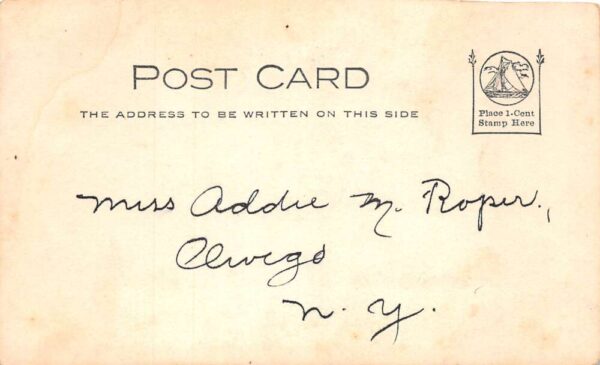 POST CARD
THE ADDRESS TO BE WRITTEN ON THIS SIDE
Place 1-Cent
Stamp Here
Miss Addie M. Roper,
Owego
N. Y.